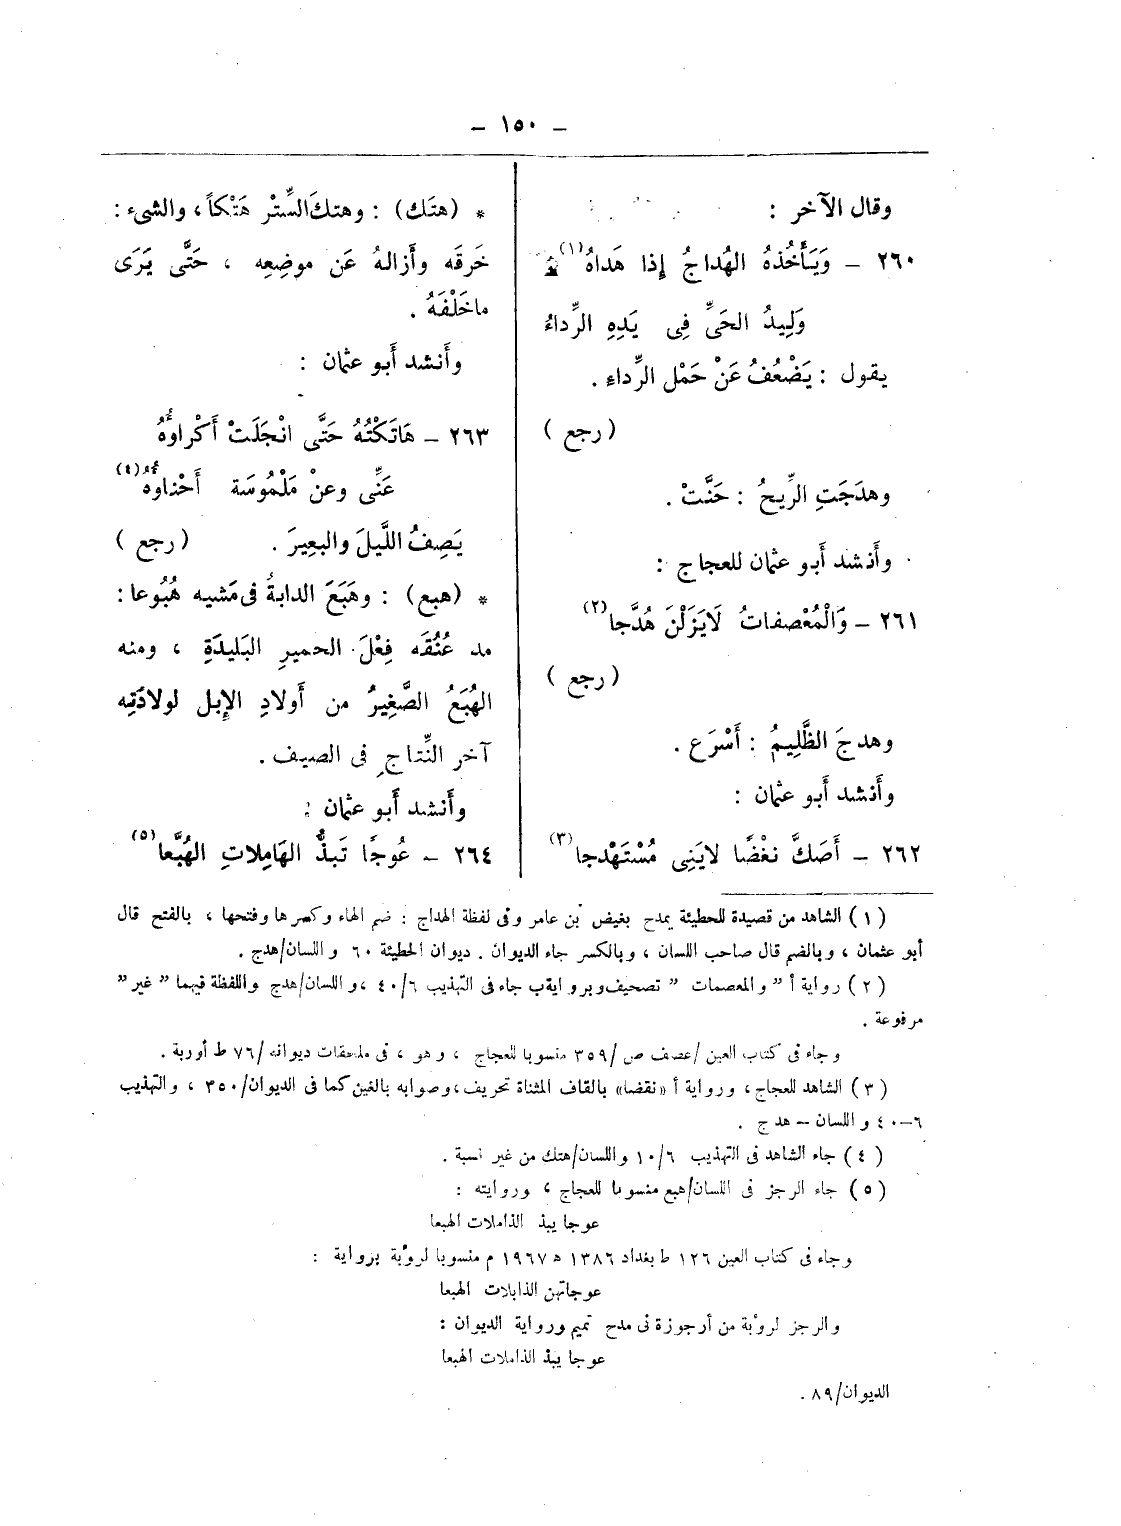 – ١٥٠ –
وقال الآخر :
٢٦٠ – وَيَأْخُذهُ الهُداجُ إِذا هَداهُ(١)
وَلِيدُ الحَىِّ فِى يَدِهِ الرِّداءُ
يقول : يَضْعُفُ عَنْ حَمْل الرِّداءِ .
( رجع )
وهدَجَتِ الرِّيحُ : حَنَّتْ .
وأَنشد أَبو عثمان للعجاج :
٢٦١ – وَالْمُعْصفاتُ لَايَزَلْنَ هُدَّجا(٢)
( رجع )
وهدجَ الظَّلِيمُ : أَسْرَع .
وأَنشد أَبو عثمان :
٢٦٢ – أَصَكَّ نغْضًا لايَنِى مُسْتَهْدجا(٣)
* (هتَك) : وهتكَ السِّتْر هَتْكاً ، والشىء :
خَرقَه وأَزالهُ عَن موضِعِه ، حَتَّى يَرَى
ماخَلْفَهُ .
وأَنشد أَبو عثمان :
٢٦٣ – هَاتَكْتُهُ حَتَّى انْجَلَتْ أَكْراوُهُ
عَنِّى وعنْ مَلْمُوسَة أَحْناوُهُ(٤)
يَصِفُ اللَّيلَ والبعِيرَ . ( رجع )
* (هبع) : وهَبَعَ الدابةُ فى مَشيه هُبُوعا :
مد عُنُقَه فِعْلَ الحميرِ البَليدَةِ ، ومنه
الهُبَعُ الصَّغِيرُ من أَولادِ الإِبل لولادَتِه
آخر النِّتاجِ فى الصيف .
وأَنشد أَبو عثمان :
٢٦٤ – عُوجًا تَبذُّ الهَامِلاتِ الهُبَّعا(٥)
( ١ ) الشاهد من قصيدة للحطيئة يمدح بغيض بن عامر وفى لفظة الهداج : ضم الهاء وكسرها وفتحها ، بالفتح قال
أبو عثمان ، وبالضم قال صاحب اللسان ، وبالكسر جاء الديوان . ديوان الحطيئة ٦٠ واللسان/هدج .
( ٢ ) رواية أ ” والمعصمات “ تصحيف وبرواية ب جاء فى التهذيب ٤٠/٦ ، واللسان/هدج واللفظة فيهما ” غير “
مرفوعة .
وجاء فى كتاب العين /عصف ص /٣٥٩ منسوبا للعجاج ، وهو ، فى ملحقات ديوانه /٧٦ ط أوربة .
( ٣ ) الشاهد للعجاج ، ورواية أ «نقضا» بالقاف المثناة تحريف ، وصوابه بالغين كما فى الديوان/٣٥٠ ، والتهذيب
٦–٤٠ واللسان – هدج .
( ٤ ) جاء الشاهد فى التهذيب ١٠/٦ واللسان/هتك من غير نسبة .
( ٥ ) جاء الرجز فى اللسان/هبع منسوبا للعجاج ، وروايته :
عوجا يبذ الذاملات الهبعا
وجاء فى كتاب العين ١٢٦ ط بغداد ١٣٨٦ ه ١٩٦٧ م منسوبا لرؤبة برواية :
عوجاتهن الذابلات الهبعا
والرجز لرؤبة من أرجوزة فى مدح تميم ورواية الديوان :
عوجا يبذ الذاملات الهبعا
الديوان/٨٩ .